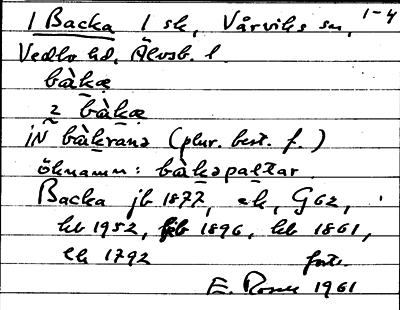 1 Backa 1 sk, Vårviks sn, 1-4
Vedbo hd, Älvsb. l.
bàkæ
2 bàkæ
iN bàkrana (plur. best. f.)
öknamn: bàkapaltar
Backa jb 1877, ek, G62,
kb 1952, jb 1896, kb 1861,
ek 1792 forts.
E. Rosell 1961